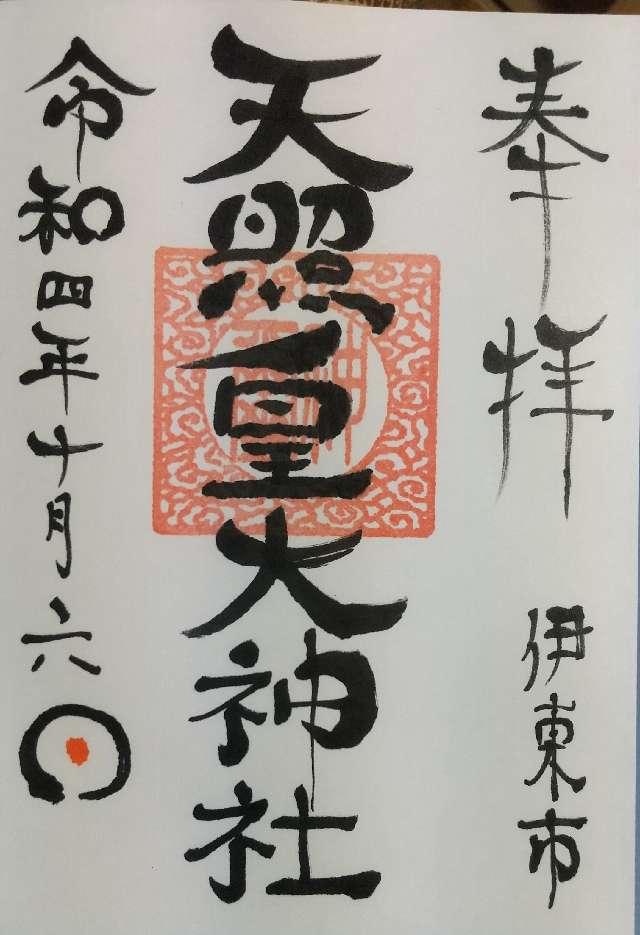 奉拝
伊東市
天照皇大神社
令和四年十月六日